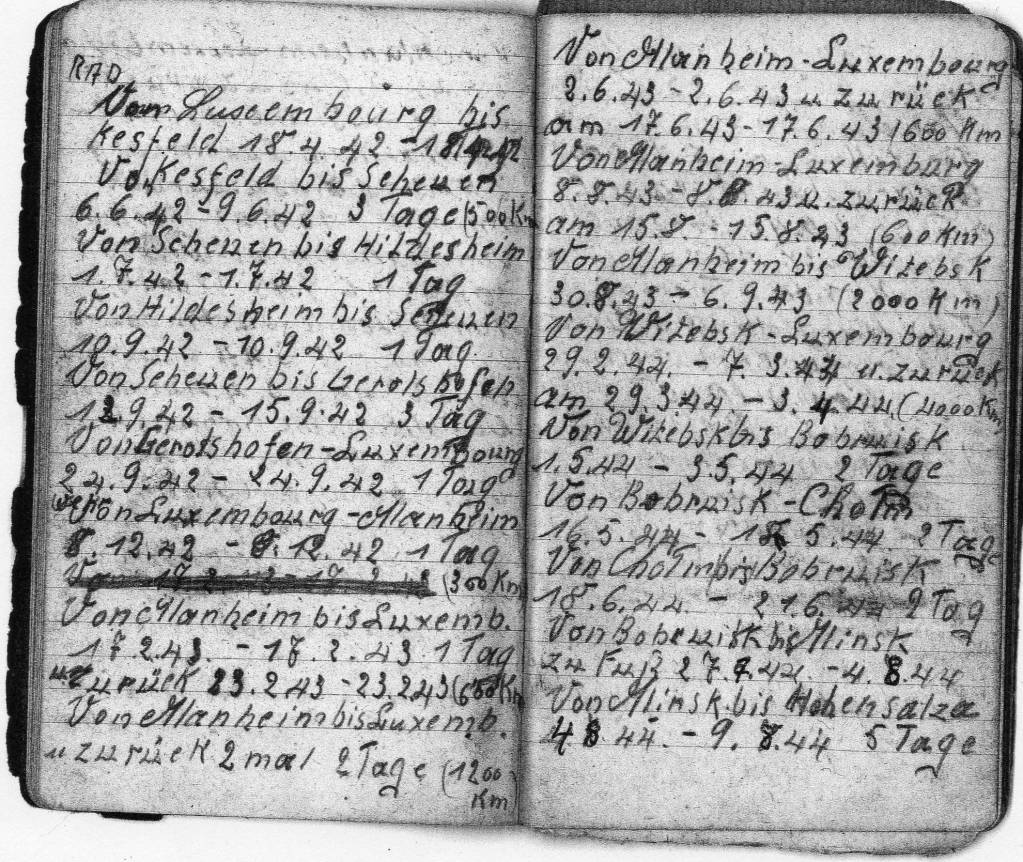 RAD
Von Luxembourg bis
Kesfeld 18 4 42 - 18 4 42
Vo. Kesfeld bis Scheuen
6.6.42 - 9.6.42 3 Tage (500 Km
Von Scheuen bis Hildesheim
1.7.42 - 1.7.42 1 Tag
Von Hildesheim bis Scheuen
10.9.42 - 10.9.42 1 Tag
Von Scheuen bis Gerolshofen
13 9.42 - 15.9.42 3 Tag
Von Gerolshofen-Luxembourg
24.9.42 - 24.9.42 1 Tag
Von Luxembourg-Manheim
8.12.42 - 8.12.42 1 Tag
(300 Km)
Von Manheim bis Luxemb.
17 2.43. - 17.2.43 1 Tag
u. zurück 23.2 43 - 23.2 43 (600 Km
Von Manheim bis Luxemb.
u zurück 2 mal 2 Tage (1200
Km
Von Manheim-Luxembourg
2.6.43 - 2.6.43 u zurück
am 17.6.43 - 17.6.43 (600 Km
Von Manheim-Luxemburg
8.8.43 - 8.8.43 u. zurück
am 15.8. - 15.8.43 (600 Km)
Von Manheim bis Witebsk
30.8.43 - 6.9.43 (2000 Km)
Von Witebsk-Luxembourg
29.2.44 - 7.3.44 u. zurück
am 29.3 44 - 3.4.44 (4000 Km)
Von Witebsk bis Bobruisk
1.5.44 - 3.5.44 2 Tage
Von Bobruisk-Cholm
16.5.44 - 18.5.44 2 Tage
Von Cholm bis Bobruisk
18.6.44 - 21.6.44 2 Tag
Von Bobruisk bis Minsk
zu Fuß 27.7.44. - 4.8.44
Von Minsk. bis Hohensalza
4 8 44. - 9.8.44 5 Tage